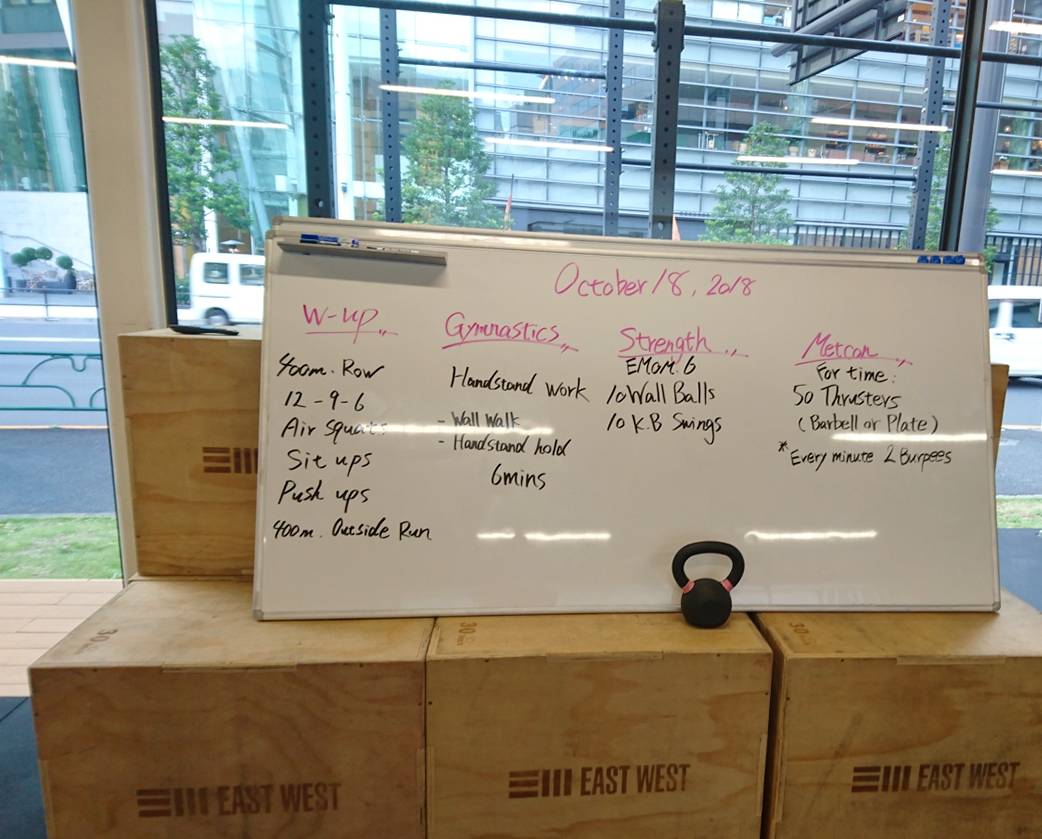 October 18, 2018
W-up
400m. Row
12-9-6
Air squats
Sit ups
Push ups
400m. Outside Run
Gymnastics
Handstand work
- Wall Walk
- Handstand hold
6mins
Strength
EMOM. 6
10 Wall Balls
10 K.B Swings
Metcon
For time:
50 Thrusters
(Barbell or Plate)
* Every minute 2 Burpees
30
30
30
EAST WEST
EAST WEST
EAST WEST